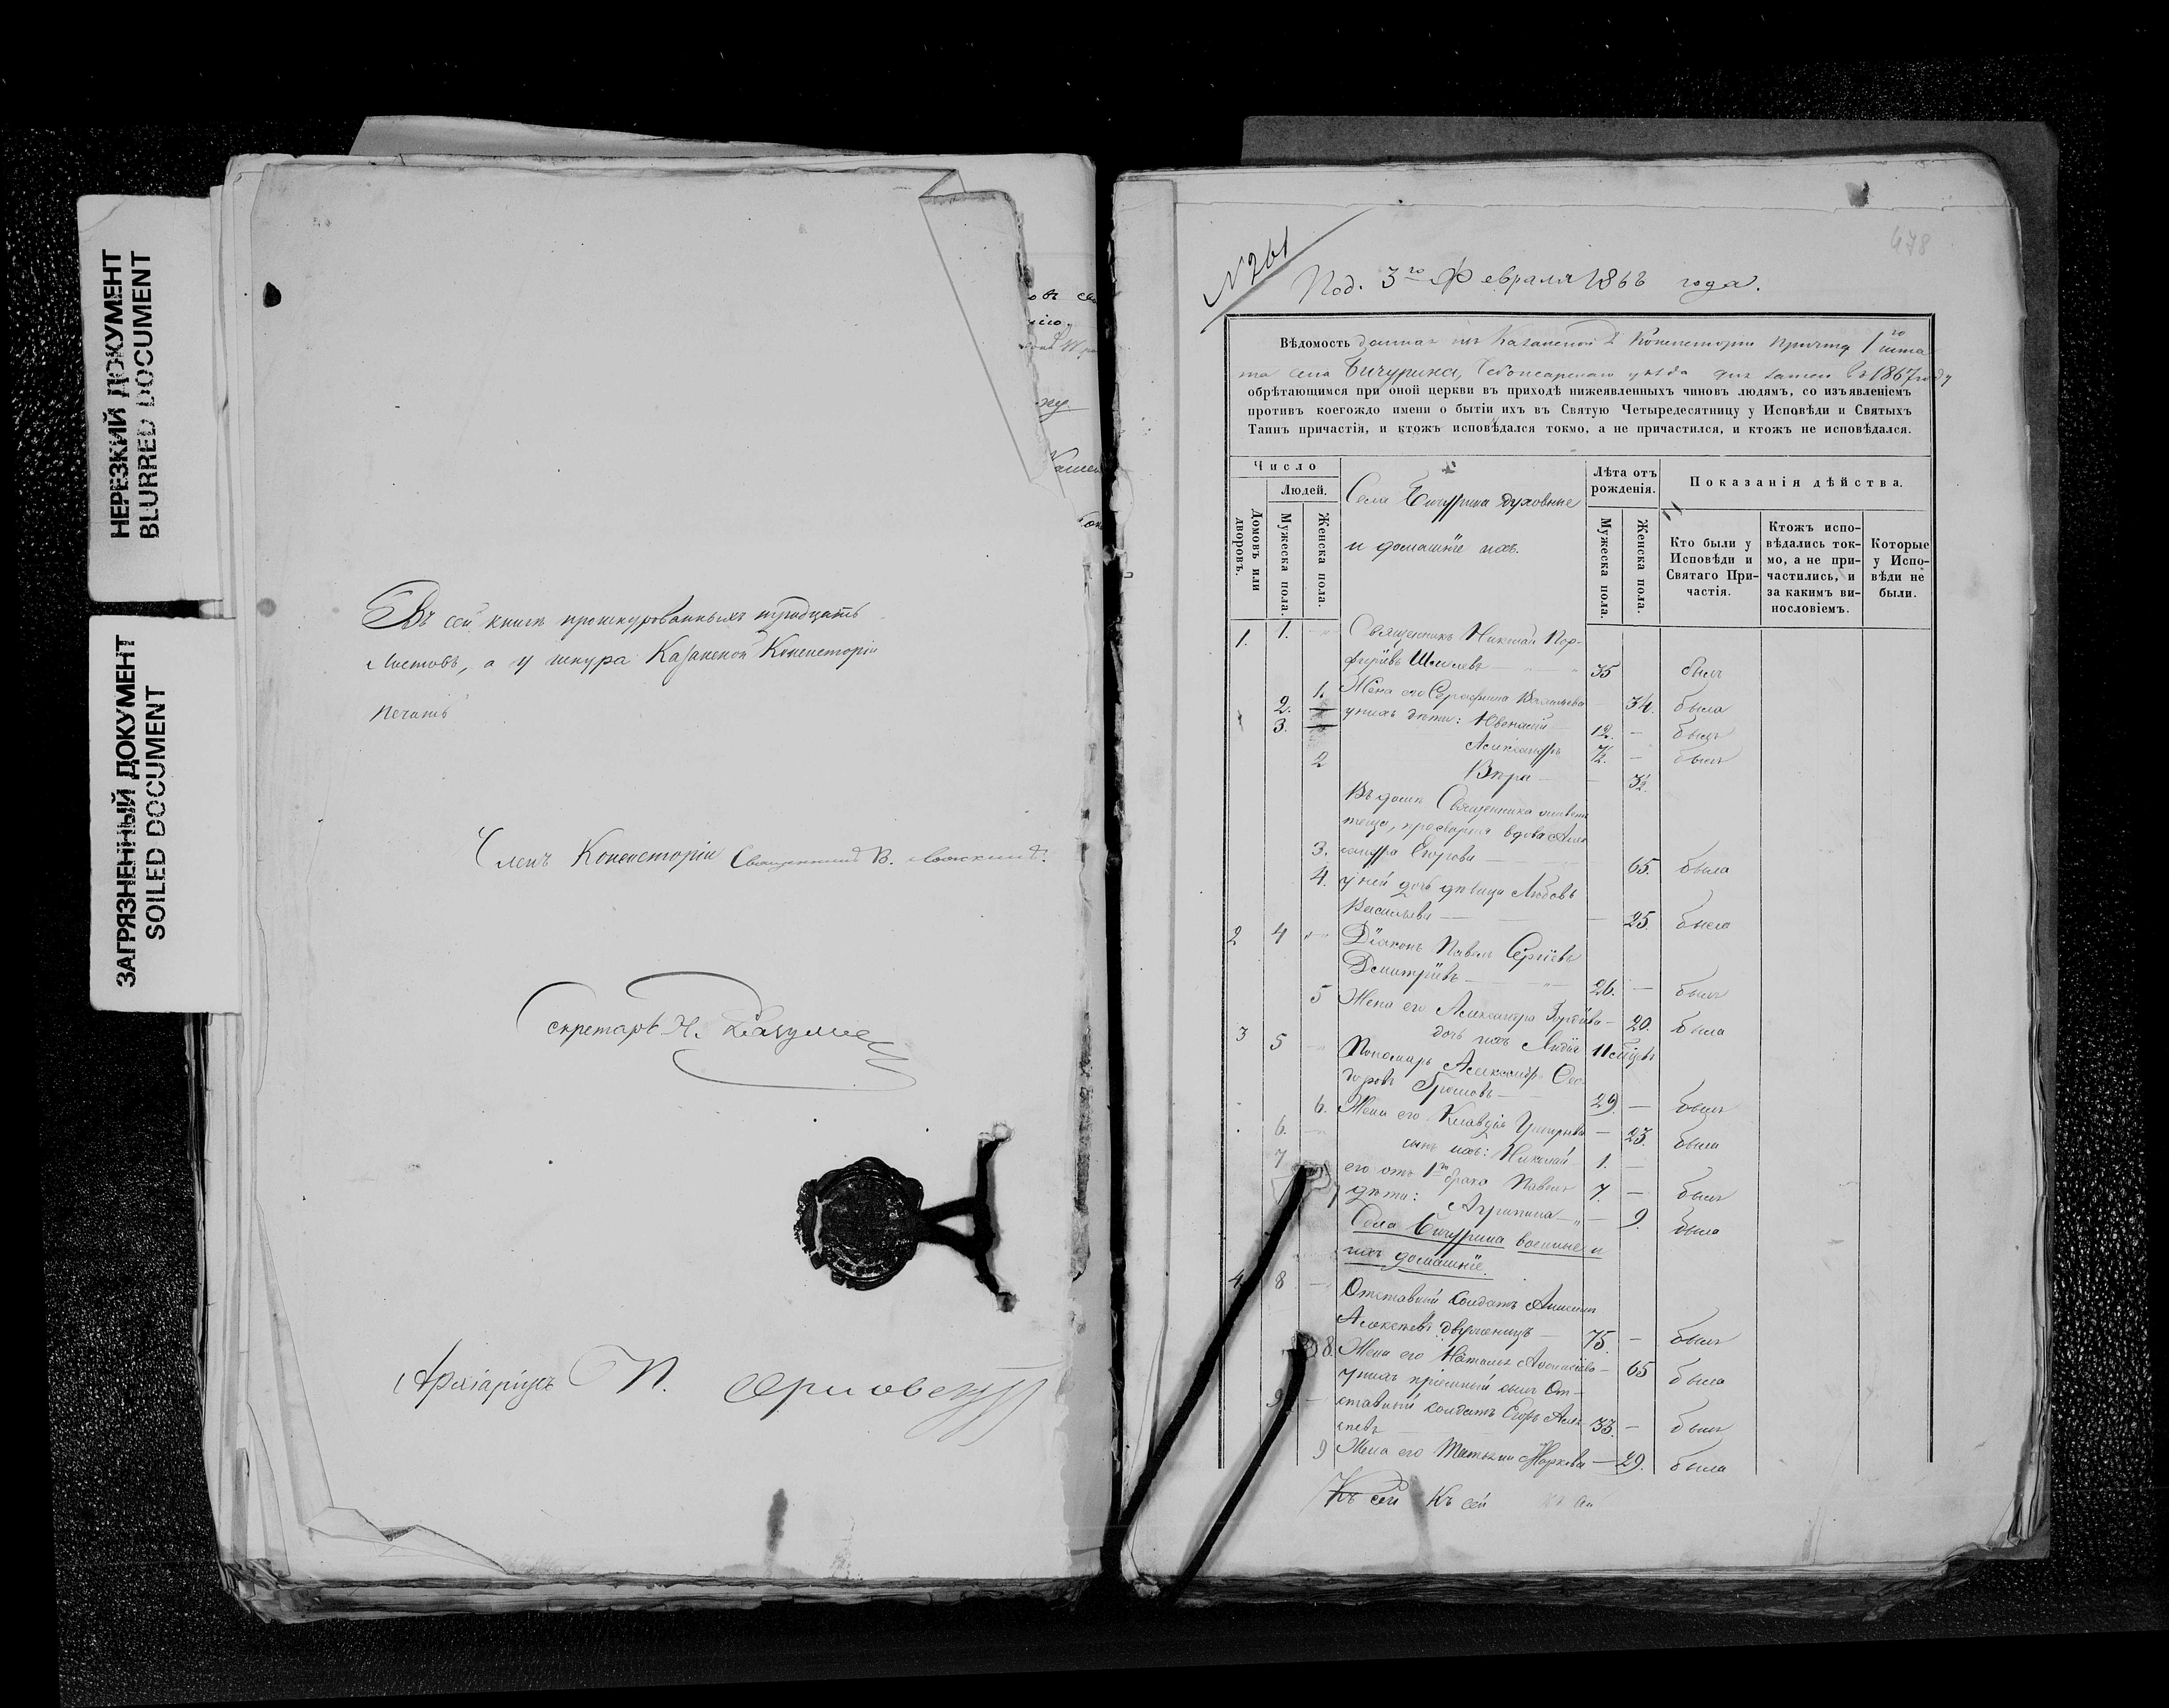 НЕРЕЗКИЙ ДОКУМЕНТ
BLURRED DOCUMENT
ЗАГРЯЗНЕННЫЙ ДОКУМЕНТ
SOILED DOCUMENT
Въ сей книгѣ прошнурованныхъ тридцать
листовъ, а у шнура Казанской Консисторіи
печать
Членъ Консисторіи Священникъ В.
Секретарь Н.
Архіаріусъ П.
№ 261
478
Под. 3го Февраля 1868 года.
Вѣдомость данная изъ Казанской Д. Консисторіи причту 1го шта
та села Бичурина, Чебоксарскаго уѣзда для записи въ 1867 году
обрѣтающимся при оной церкви въ приходѣ нижеявленныхъ чиновъ людямъ, со изъявленіемъ
противъ коегождо имени о бытіи ихъ въ Святую Четыредесятницу у Исповѣди и Святыхъ
Таинъ причастія, и ктожъ исповѣдался токмо, а не причастился, и ктожъ не исповѣдался.
Число
Людей.
Домовъ или дворовъ.
Мужеска пола.
Женска пола.
Села Бичурина духовные
и домашніе ихъ.
Лѣта отъ рожденія.
Мужеска пола
Женска пола.
Показанія дѣйства.
Кто были у Исповѣди и Святаго Причастія.
Ктожъ исповѣдались токмо, а не причастились, и за какимъ винословіемъ.
Которые у Исповѣди не были.
1. 1. Священникъ Николай Пор-
фирiевъ 35 былъ
1. Жена его Серафима Васильева 34. была
2. у нихъ дѣти: Ювеналій 12. - былъ
3. Александръ 7½. - былъ
2 Вѣра - 3½.
Въ домѣ Священника
теща, просвирня вдова Алек
3. сандра Егорова 65. была
4. у ней дочь дѣвица Любовь
Васильева - 25. была
2 4 Діаконъ Павелъ Сергіевъ
Димитріевъ 26. - былъ
5 Жена его Александра - 20. была
дочь ихъ Лидія 11 мѣсяцевъ
3 5 Пономарь Александръ Ѳео-
доровъ Громовъ 29. - былъ
6. Жена его Клавдія - 23. была
6. сынъ ихъ: Николай 1. -
7 его отъ 1го брака Павелъ 7. - былъ
7 дѣти: Агрипина - 9. была
Села Бичурина военные и
ихъ домашніе.
4 8 Отставной солдатъ
Алексѣевъ 75. - былъ
8. Жена его Наталья - 65 была
у нихъ пріемный сынъ От-
9 ставной солдатъ Егоръ Алек
сѣевъ 33. - былъ
9 Жена его Татьяна Маркова - 29. была
Къ сей Къ сей